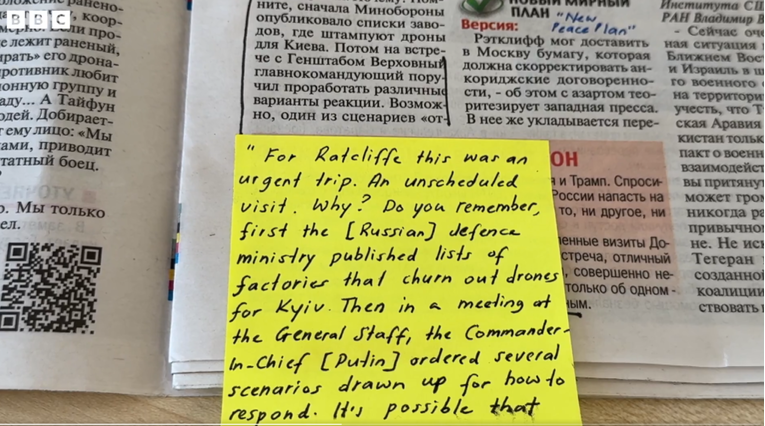 BBC
коор-
про-
е лежит раненый,
ирать» его дрона-
ротивник любит
ионную группу и
аду... А Тайфун
юдей. Добирает-
т ему лицо: «Мы
ами, приводит
татный боец.
?
о. Мы только
ел.
ните, сначала Минобороны
опубликовало списки заво-
дов, где штампуют дроны
для Киева. Потом на встре-
че с Генштабом Верховный
главнокомандующий пору-
чил проработать различные
варианты реакции. Возмож-
но, один из сценариев «от-
НОВЫЙ МИРНЫЙ
ПЛАН
"New
Peace Plan"
Версия:
Рэтклифф мог доставить
в Москву бумагу, которая
должна скорректировать ан-
кориджские договоренно-
сти, - об этом с азартом тео-
ретизирует западная пресса.
В нее же укладывается пере-
ОН
я и Трамп. Спроси-
России напасть на
то, ни другое, ни
енные визиты До-
стреча, отличный
, совершенно не-
только об одном -
ным.
Института США
РАН Владимир В
- Сейчас оче
ная ситуация
Ближнем Вос
и Израиль в ш
го военного
на территори
учесть, что Т
ская Аравия
кистан только
пакт о военн
взаимодейст
вы притянут
может гром
никогда ра
привычном
не. Не иск
Тегеран
созданной
коалиции
ствовать
" For Ratcliffe this was an
urgent trip. An unscheduled
visit. Why? Do you remember,
first the [Russian] defence
ministry published lists of
factories that churn out drones
for Kyiv. Then in a meeting at
the General Staff, the Commander-
In-Chief [Putin] ordered several
scenarios drawn up for how to
respond. It's possible that